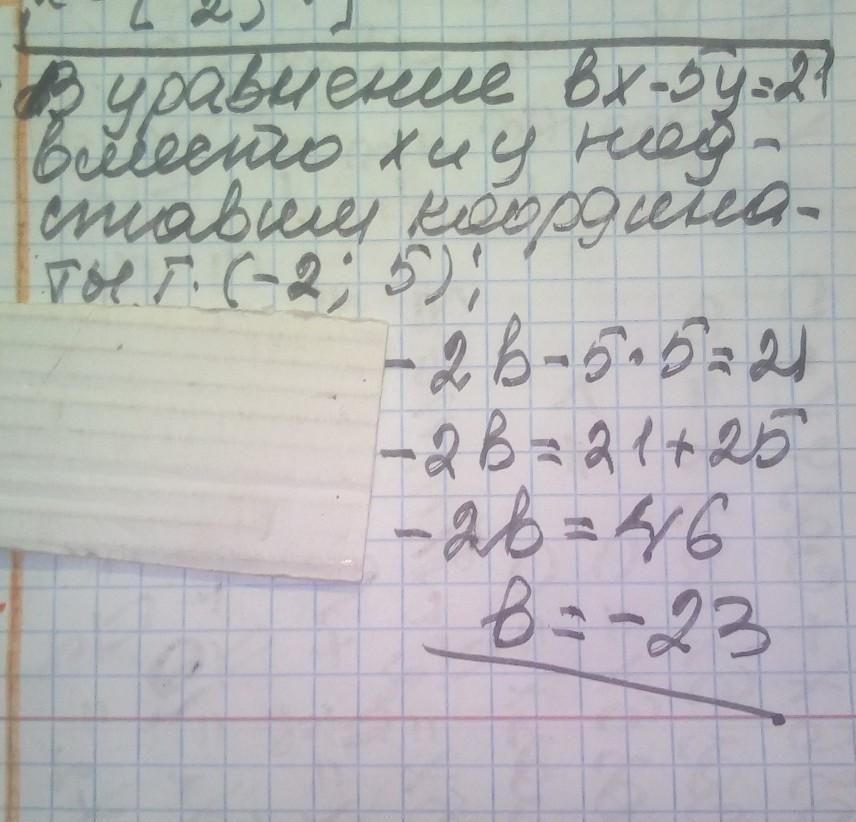 В уравнение вх-5у=21
вместо х и у под-
ставим координа-
ты т. (-2; 5);
- 2в - 5·5 = 21
-2в = 21+25
-2в = 46
в = -23